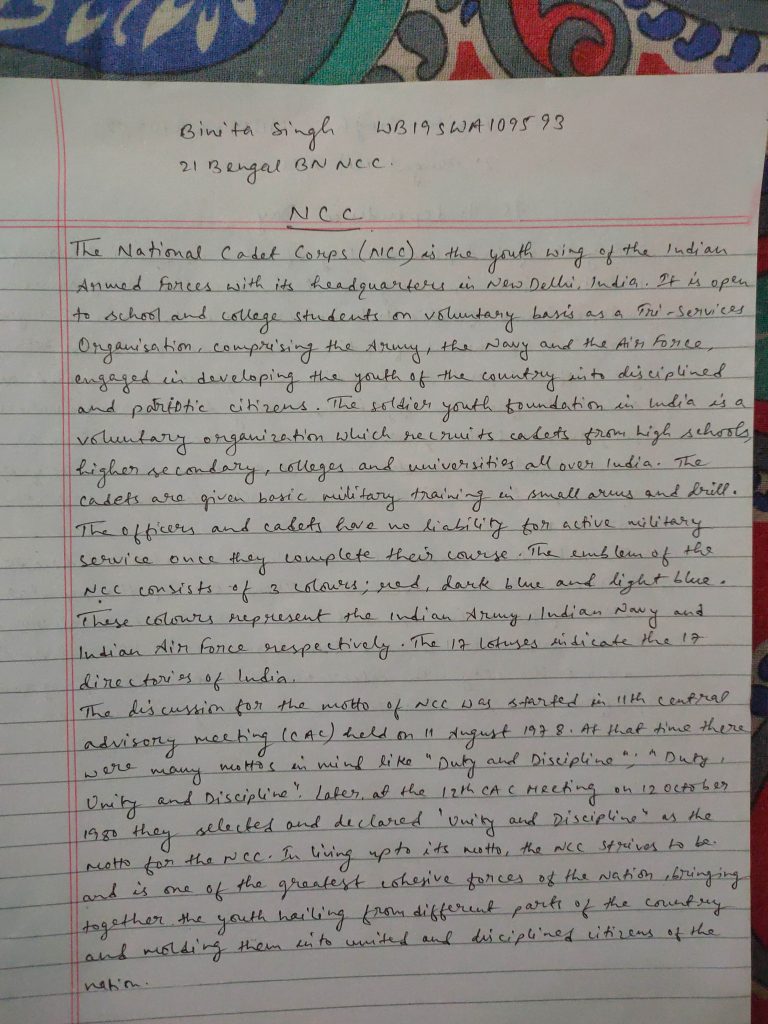 Binita Singh WB19SWA109593
21 Bengal BN NCC.
NCC
The National Cadet Corps (NCC) is the youth wing of the Indian
Armed Forces with its headquarters in New Delhi, India. It is open
to school and college students on voluntary basis as a Tri-Services
Organisation, comprising the Army, the Navy and the Air Force,
engaged in developing the youth of the country into disciplined
and pariotic citizens. The soldier youth foundation in India is a
voluntary organization which recruits cadets from high schools,
higher secondary, colleges and universities all over India. The
cadets are given basic military training in small arms and drill.
The officers and cadets have no liability for active military
service once they complete their course. The emblem of the
NCC consists of 3 colours; red, dark blue and light blue.
These colours represent the Indian Army, Indian Navy and
Indian Air Force respectively. The 17 lotuses indicate the 17
directories of India.
The discussion for the motto of NCC was started in 11th central
advisory meeting (CAC) held on 11 August 1978. At that time there
were many mottos in mind like "Duty and Discipline"; "Duty,
Unity and Discipline". Later, at the 12th CAC Meeting on 12 October
1980 they selected and declared 'Unity and Discipline" as the
motto for the NCC. In living upto its motto, the NCC strives to be
and is one of the greatest cohesive forces of the Nation, bringing
together the youth hailing from different parts of the country
and molding them into united and disciplined citizens of the
nation.